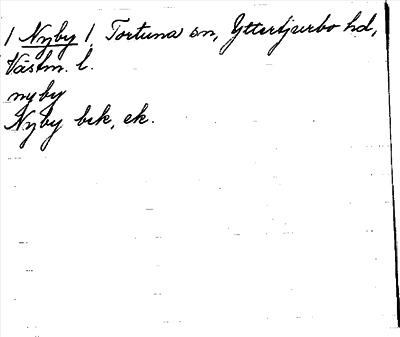 / Nyby /, Tortuna sn, Yttertjurbo hd,
Västm. l.
nyby
Nyby bik, ek.